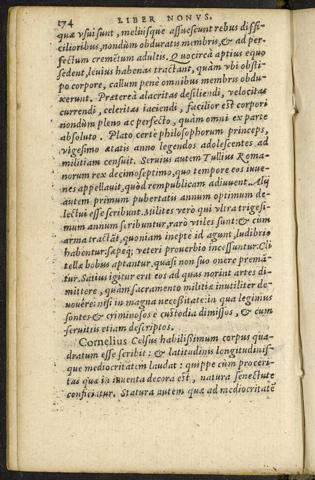 174 LIBER NONVS.
quæ vsui sunt, meliusque assuescunt rebus diffi-
cilioribus, nondum obduratis membris, & ad per-
fectum cremẽtum adultis. Quocircà aptius equo
sedent, leuius habenas tractant, quàm vbi obsti-
po corpore, callum penè omnibus membris obdu-
xerunt. Prætereà alacritas desiliendi, velocitas
currendi, celeritas iaciendi, facilior est corpori
nondùm pleno ac perfecto, quàm omni ex parte
absoluto. Plato certè philosophorum princeps,
vigesimo ætatis anno legendos adolescentes ad
militiam censuit. Seruius autem Tullius Roma-
norum rex decimoseptimo, quo tempore eos iuue-
nes appellauit, quòd rempublicam adiuuent. Alij
autem primum pubertatis annum optimum de-
lectui esse scribunt. Milites verò qui vltra trigesi-
mum annum scribuntur, rarò vtiles sunt: & cum
arma tractãt, quoniam ineptè id agunt, ludibrio
habentur: sæpeq; veteri prouerbio incessuntur. Cli
tellæ bobus aptantur, quasi non suo onere premã-
tur. Satius igitur erit eos ad quas norint artes di-
mittere, quàm sacramento militiæ inutiliter de-
uouere: nisi in magna necessitate: in qua legimus
sontes & criminosos è custodia dimissos, & cum
seruitijs etiam descriptos.
Cornelius Celsus habilissimum corpus qua-
dratum esse scribit: & latitudinis longitudinis-
que mediocritatem laudat: quippe cùm proceri-
tas quæ in iuuenta decora est, natura senectute
conficiatur. Statura autem quæ ad mediocritatẽ